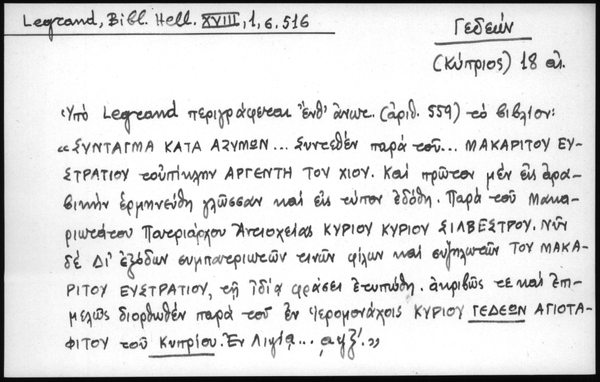 Legrand, Bibl. Hell. XVIII, 1, σ. 516
Γεδεών
(Κύπριος) 18 αι.
Ὑπό Legrand περιγράφεται ἔνθ' ἀνωτ. (ἀριθ. 559) τό βιβλίον:
«ΣΥΝΤΑΓΜΑ ΚΑΤΑ ΑΖΥΜΩΝ... Συντεθέν παρά τοῦ... ΜΑΚΑΡΙΤΟΥ ΕΥ-
ΣΤΡΑΤΙΟΥ τοὐπίκλην ΑΡΓΕΝΤΗ ΤΟΥ ΧΙΟΥ. Καί πρῶτον μέν εἰς ἀρα-
βικήν ἑρμηνεύθη γλῶσσαν καί εἰς τύπον ἐδόθη. Παρά τοῦ Μακα-
ριωτάτου Πατριάρχου Ἀντιοχείας ΚΥΡΙΟΥ ΚΥΡΙΟΥ ΣΙΛΒΕΣΤΡΟΥ. Νῦν
δέ Δι' ἐξόδων συμπατριωτῶν τινῶν φίλων καί συζηλωτῶν ΤΟΥ ΜΑΚΑ-
ΡΙΤΟΥ ΕΥΣΤΡΑΤΙΟΥ, τῇ ἰδίᾳ φράσει ἐτυπώθη. ἀκριβῶς τε καί ἐπι-
μελῶς διορθωθέν παρά τοῦ ἐν Ἱερομονάχοις ΚΥΡΙΟΥ ΓΕΔΕΩΝ ΑΓΙΟΤΑ-
ΦΙΤΟΥ τοῦ Κυπρίου. Ἐν Λιψίᾳ... ͵αψξ'.»